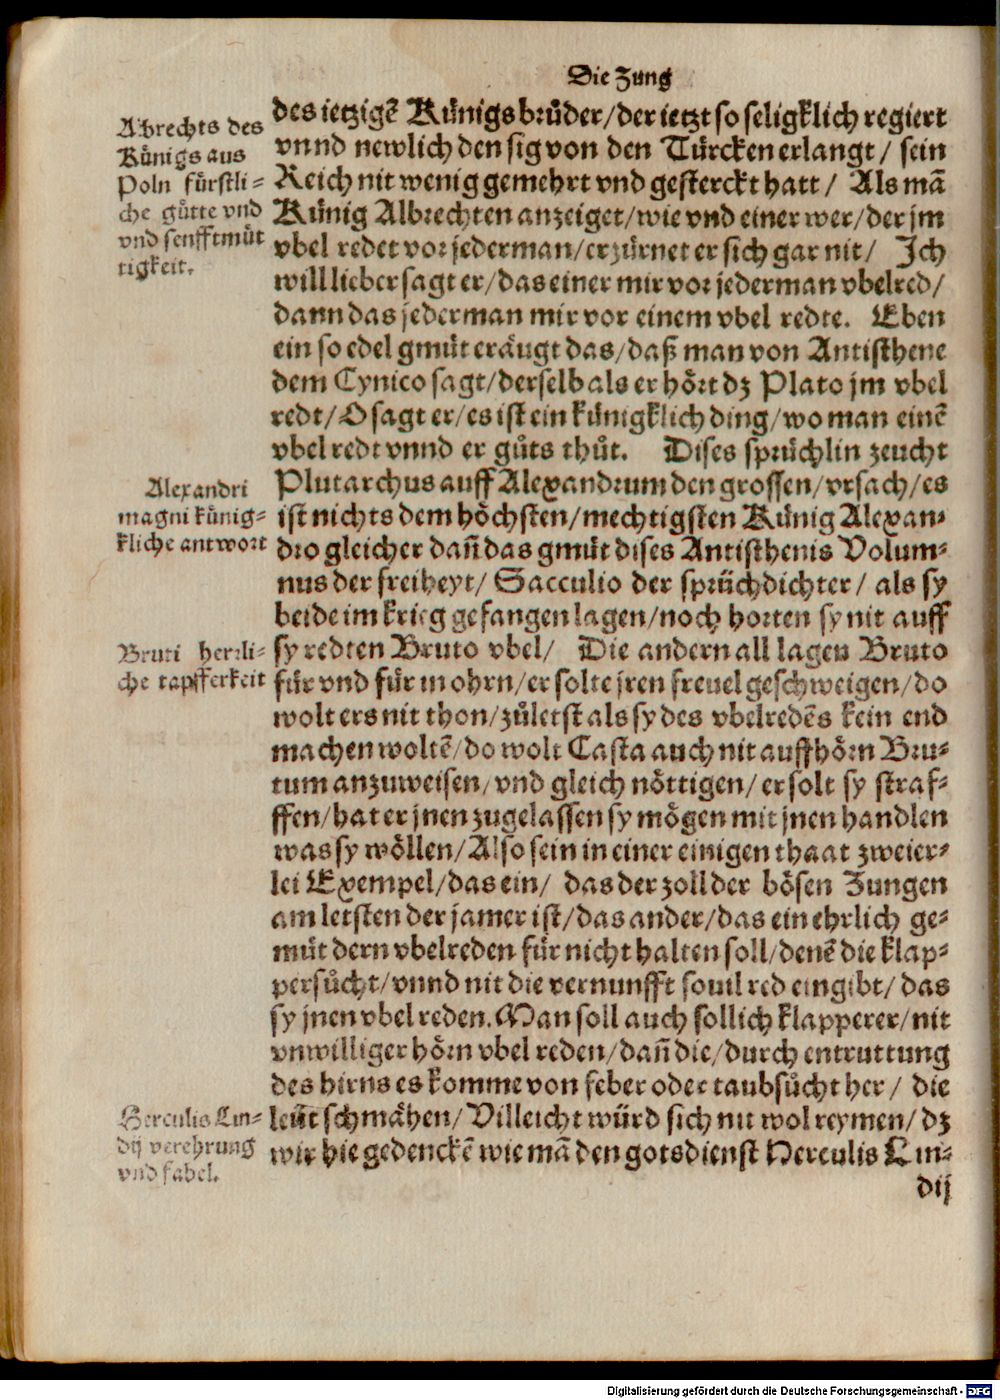 Die Zung
des ietzigē Künigs brůder/der ietzt so seligklich regiert
vnnd newlich den sig von den Türcken erlangt/ sein
Reich nit wenig gemehrt vnd gesterckt hatt/ Als mā
Künig Albrechten anzeiget/wie vnd einer wer/der jm
vbel redet vor jederman/erzürnet er sich gar nit/ Ich
will lieber sagt er/das einer mir vor jederman vbelred/
dann das jederman mir vor einem vbel redte. Eben
ein so edel gmüt eräugt das/daß man von Antisthene
dem Cynico sagt/derselb als er hört dz Plato jm vbel
redt/O sagt er/es ist ein künigklich ding/wo man einē
vbel redt vnnd er gůts thůt. Dises sprüchlin zeucht
Plutarchus auff Alexandrum den grossen/vrsach/es
ist nichts dem höchsten/mechtigsten Künig Alexan-
dro gleicher dañ das gmüt dises Antisthenis Volum-
nus der freiheyt/ Sacculio der sprüchdichter/ als sy
beide im krieg gefangen lagen/noch horten sy nit auff
sy redten Bruto vbel/ Die andern all lagen Bruto
für vnd für in ohrn/er solte jren freuel geschweigen/do
wolt ers nit thon/zůletst als sy des vbelredēs kein end
machen woltē/do wolt Casta auch nit auffhörn Bru-
tum anzuweisen/vnd gleich nöttigen/er solt sy straf-
ffen/hat er jnen zugelassen sy mögen mit jnen handlen
was sy wöllen/Also sein in einer einigen thaat zweier-
lei Exempel/das ein/ das der zoll der bösen Zungen
am letsten der jamer ist/das ander/das ein ehrlich ge-
müt dern vbelreden für nicht halten soll/denē die klap-
persůcht/vnnd nit die vernunfft souil red eingibt/das
sy jnen vbel reden. Man soll auch sollich klapperer/nit
vnwilliger hörn vbel reden/dañ die/durch entruttung
des hirns es komme von feber oder taubsůcht her/ die
leüt schmähen/Villeicht würd sich nit wol reymen/dz
wir hie gedenckē wie mā den gotsdienst Herculis Lin-
dij
Albrechts des
Künigs aus
Poln fürstli-
che gütte vnd
vnd senfftmüt
tigkeit.
Alexandri
magni künig-
kliche antwort
Bruti herrli-
che tapfferkeit
Herculis Lin-
dij verehrung
vnd fabel.
Digitalisierung gefördert durch die Deutsche Forschungsgemeinschaft - DFG